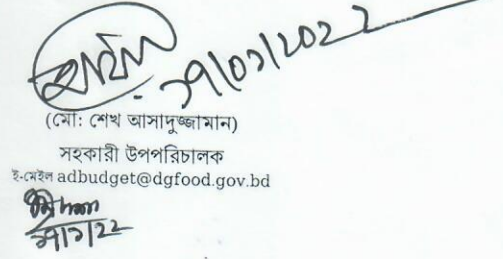 ২৭/০১/২০২২
(মো: শেখ আসাদুজ্জামান)
সহকারী উপপরিচালক
ই-মেইল adbudget@dgfood.gov.bd